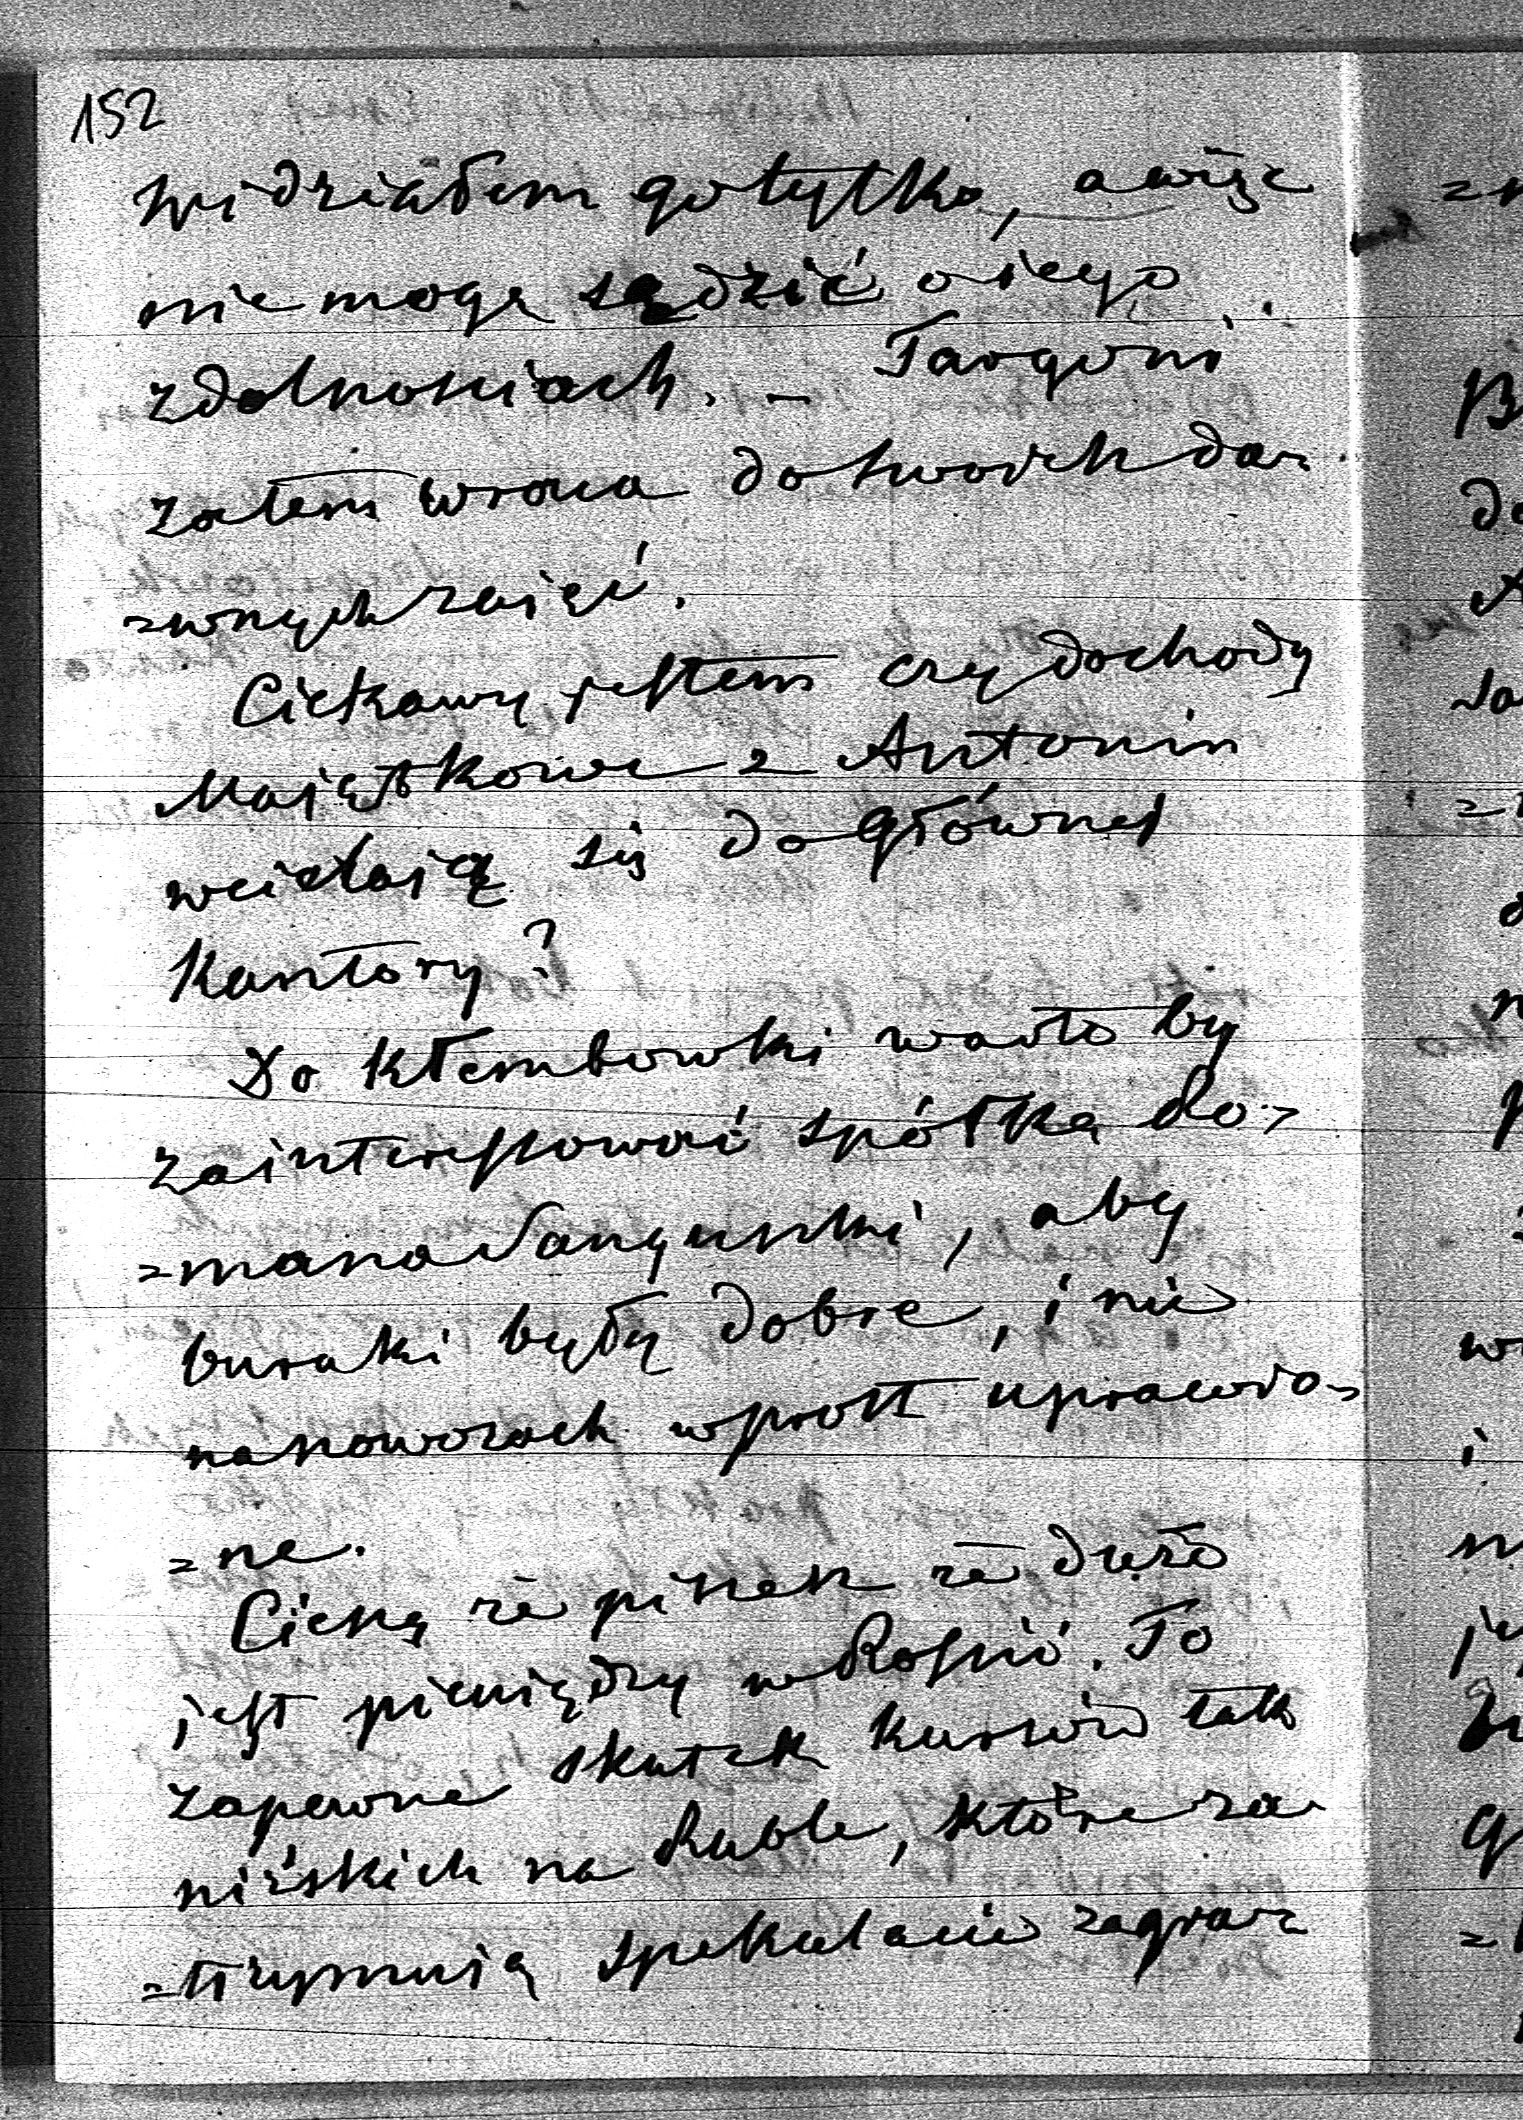 152
widziałem go tylko, a więc
nie mogę sądzić o iego
zdolnościach. – Targoni
zatem wraca do twoich da=
=wnych zaięć.
Ciekawy jestem czy dochody
Maiątkowe z Antonin
wcielaią się do główney
Kantory?
Do Kłembowki warto by
zainteressować spółkę Ro=
=mana Sanguszki, aby
buraki były dobre, i nie
na nawozach wprost uprawia=
=ne.
Cieszą że piszesz że dużo
jest pieniędzy w Rossii. To
zapewne skutek kursów tak
niskich na Ruble, które za=
=trzymuią spekulacie zagra=